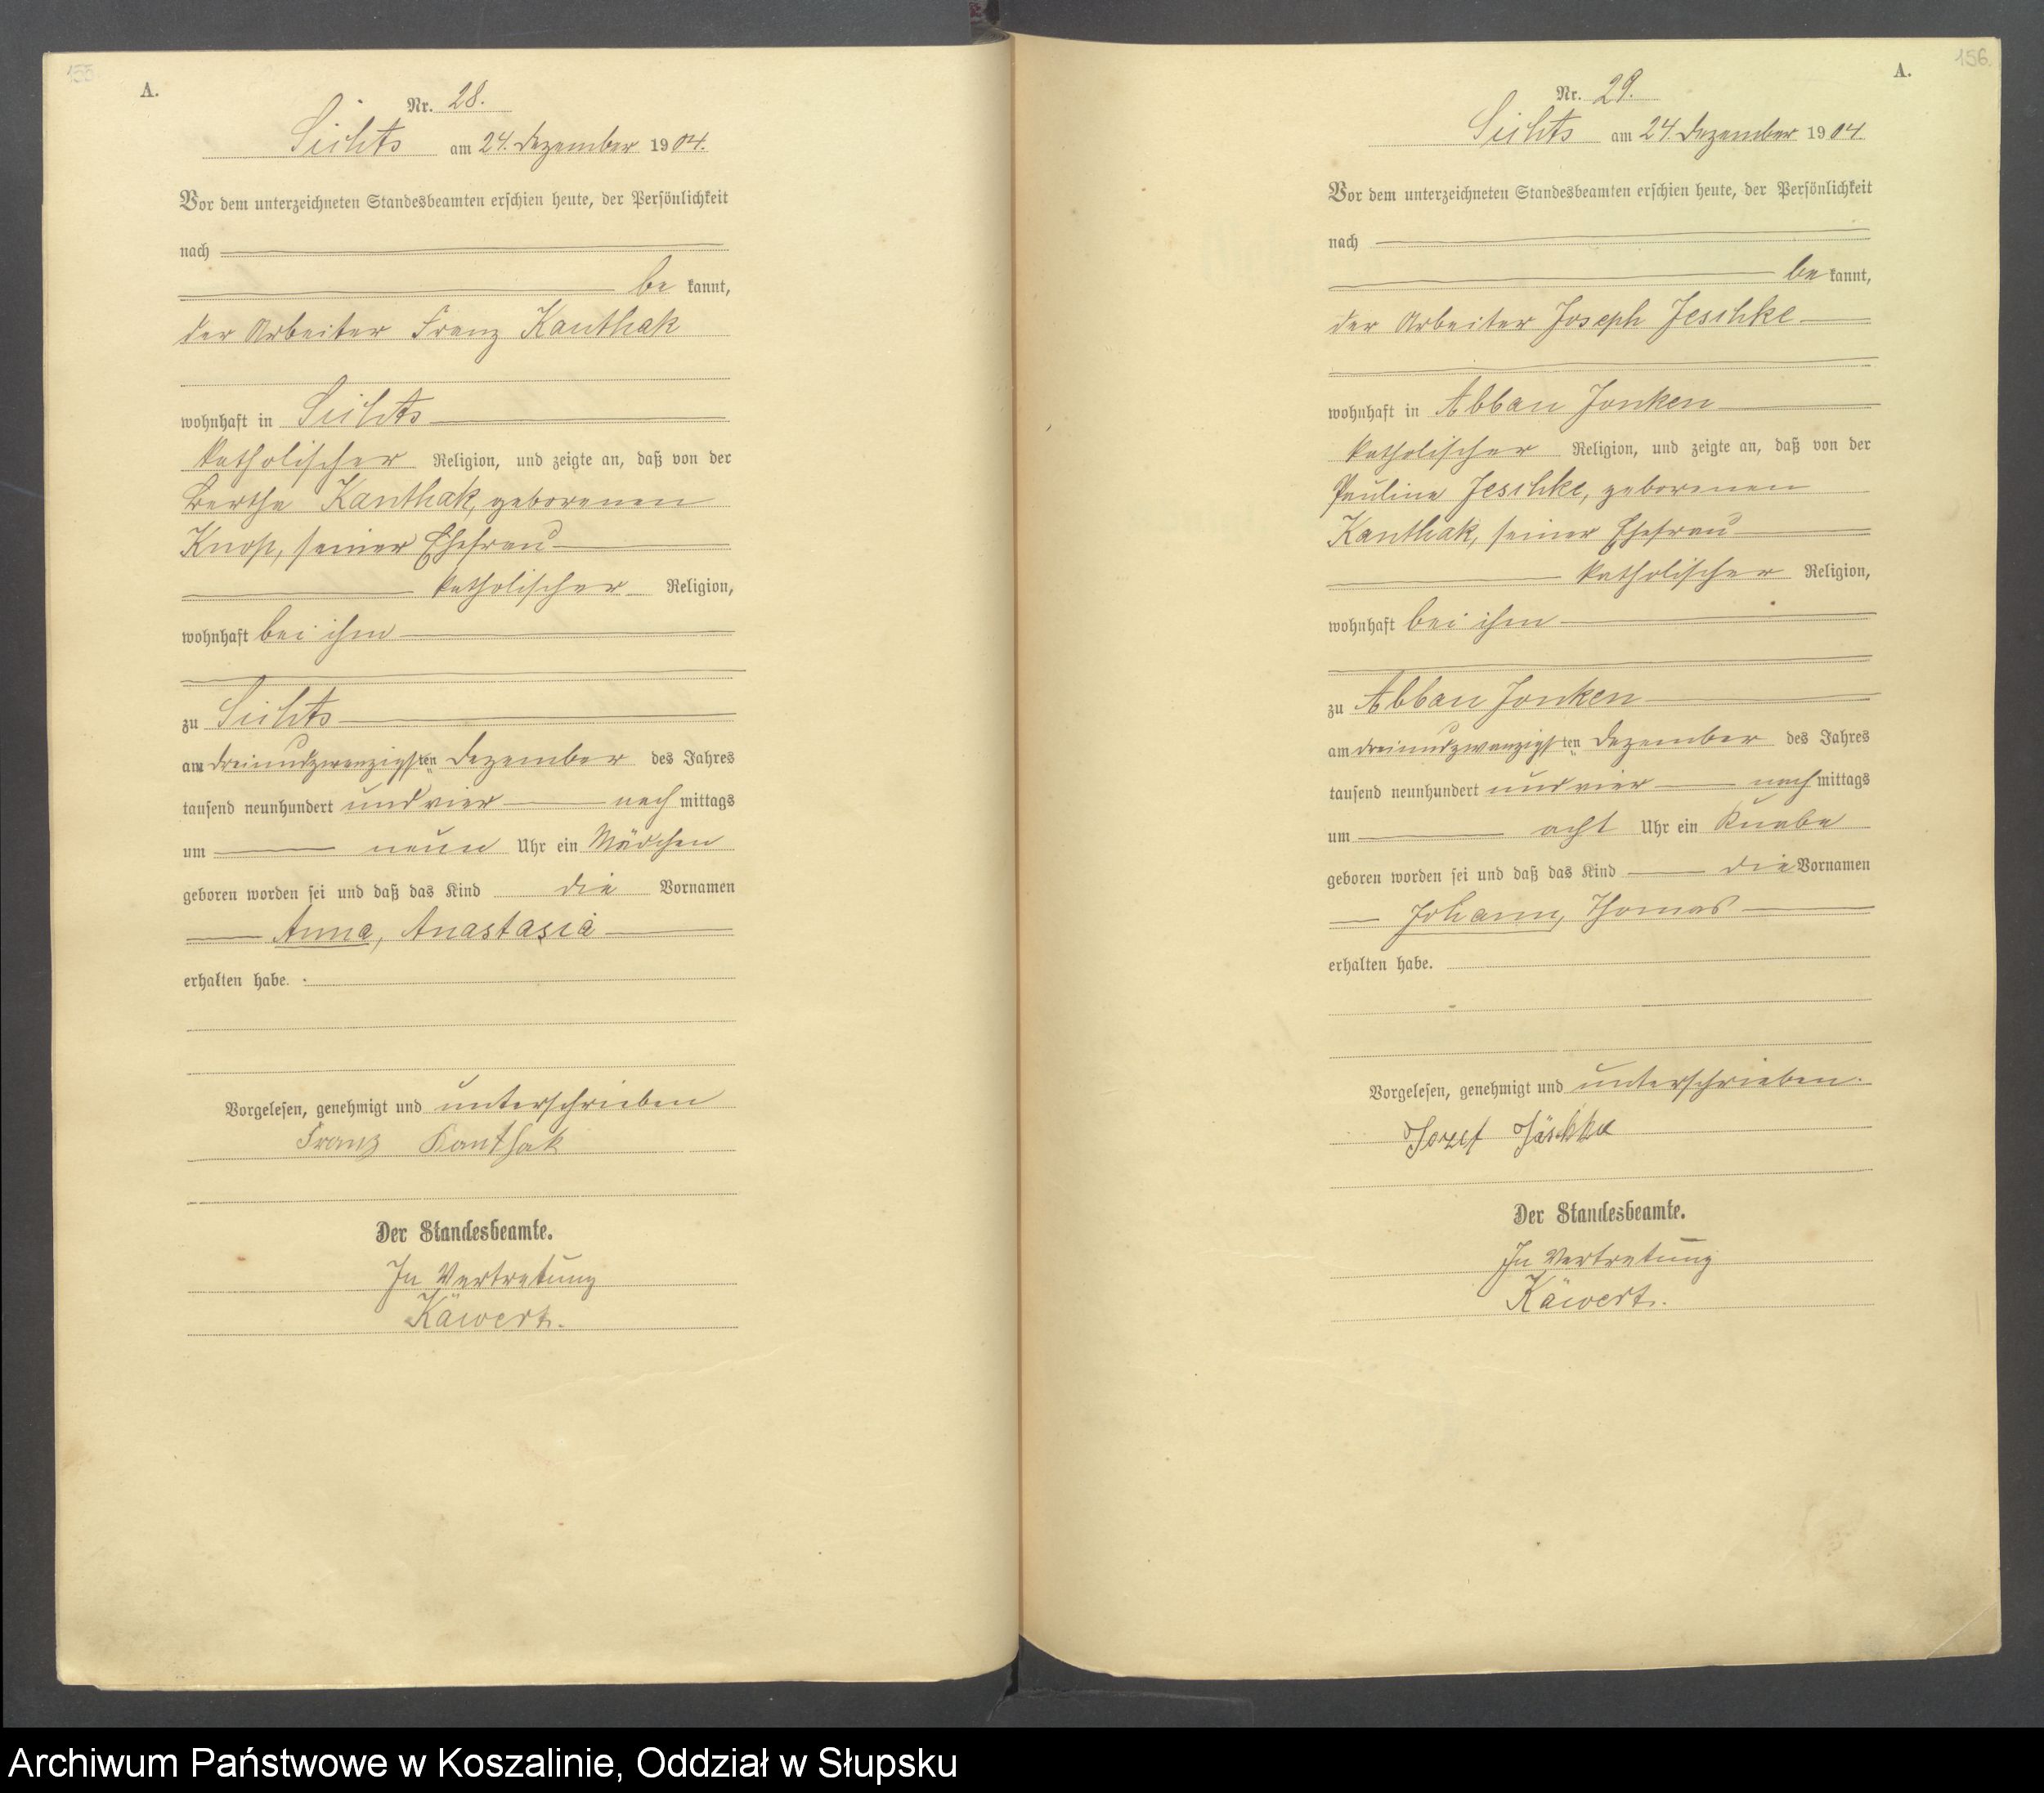 155
A.
Nr. 28.
Sichts am 24. Dezember 1904.
Vor dem unterzeichneten Standesbeamten erschien heute, der Persönlichkeit
nach
be kannt,
der Arbeiter Franz Kanthak
wohnhaft in Sichts
katholischer Religion, und zeigte an, daß von der
Bertha Kanthak, geborenen
Knop, seiner Ehefrau
katholischer Religion,
wohnhaft bei ihm
zu Sichts
am dreiundzwanzigsten Dezember des Jahres
tausend neunhundert und vier nach mittags
um neun Uhr ein Mädchen
geboren worden sei und daß das Kind die Vornamen
Anna, Anastasia
erhalten habe.
Vorgelesen, genehmigt und unterschrieben
Franz Kanthak
Der Standesbeamte.
In Vertretung
Käwert.
156.
A.
Nr. 29.
Sichts am 24. Dezember 1904.
Vor dem unterzeichneten Standesbeamten erschien heute, der Persönlichkeit
nach
be kannt,
der Arbeiter Joseph Jeschke
wohnhaft in Abbau Jonken
katholischer Religion, und zeigte an, daß von der
Pauline Jeschke, geborenen
Kanthak, seiner Ehefrau
katholischer Religion,
wohnhaft bei ihm
zu Abbau Jonken
am dreiundzwanzigsten Dezember des Jahres
tausend neunhundert und vier nach mittags
um acht Uhr ein Knabe
geboren worden sei und daß das Kind die Vornamen
Johann, Thomas
erhalten habe.
Vorgelesen, genehmigt und unterschrieben.
Jozef Jäschke
Der Standesbeamte.
In Vertretung
Käwert.
Archiwum Państwowe w Koszalinie, Oddział w Słupsku